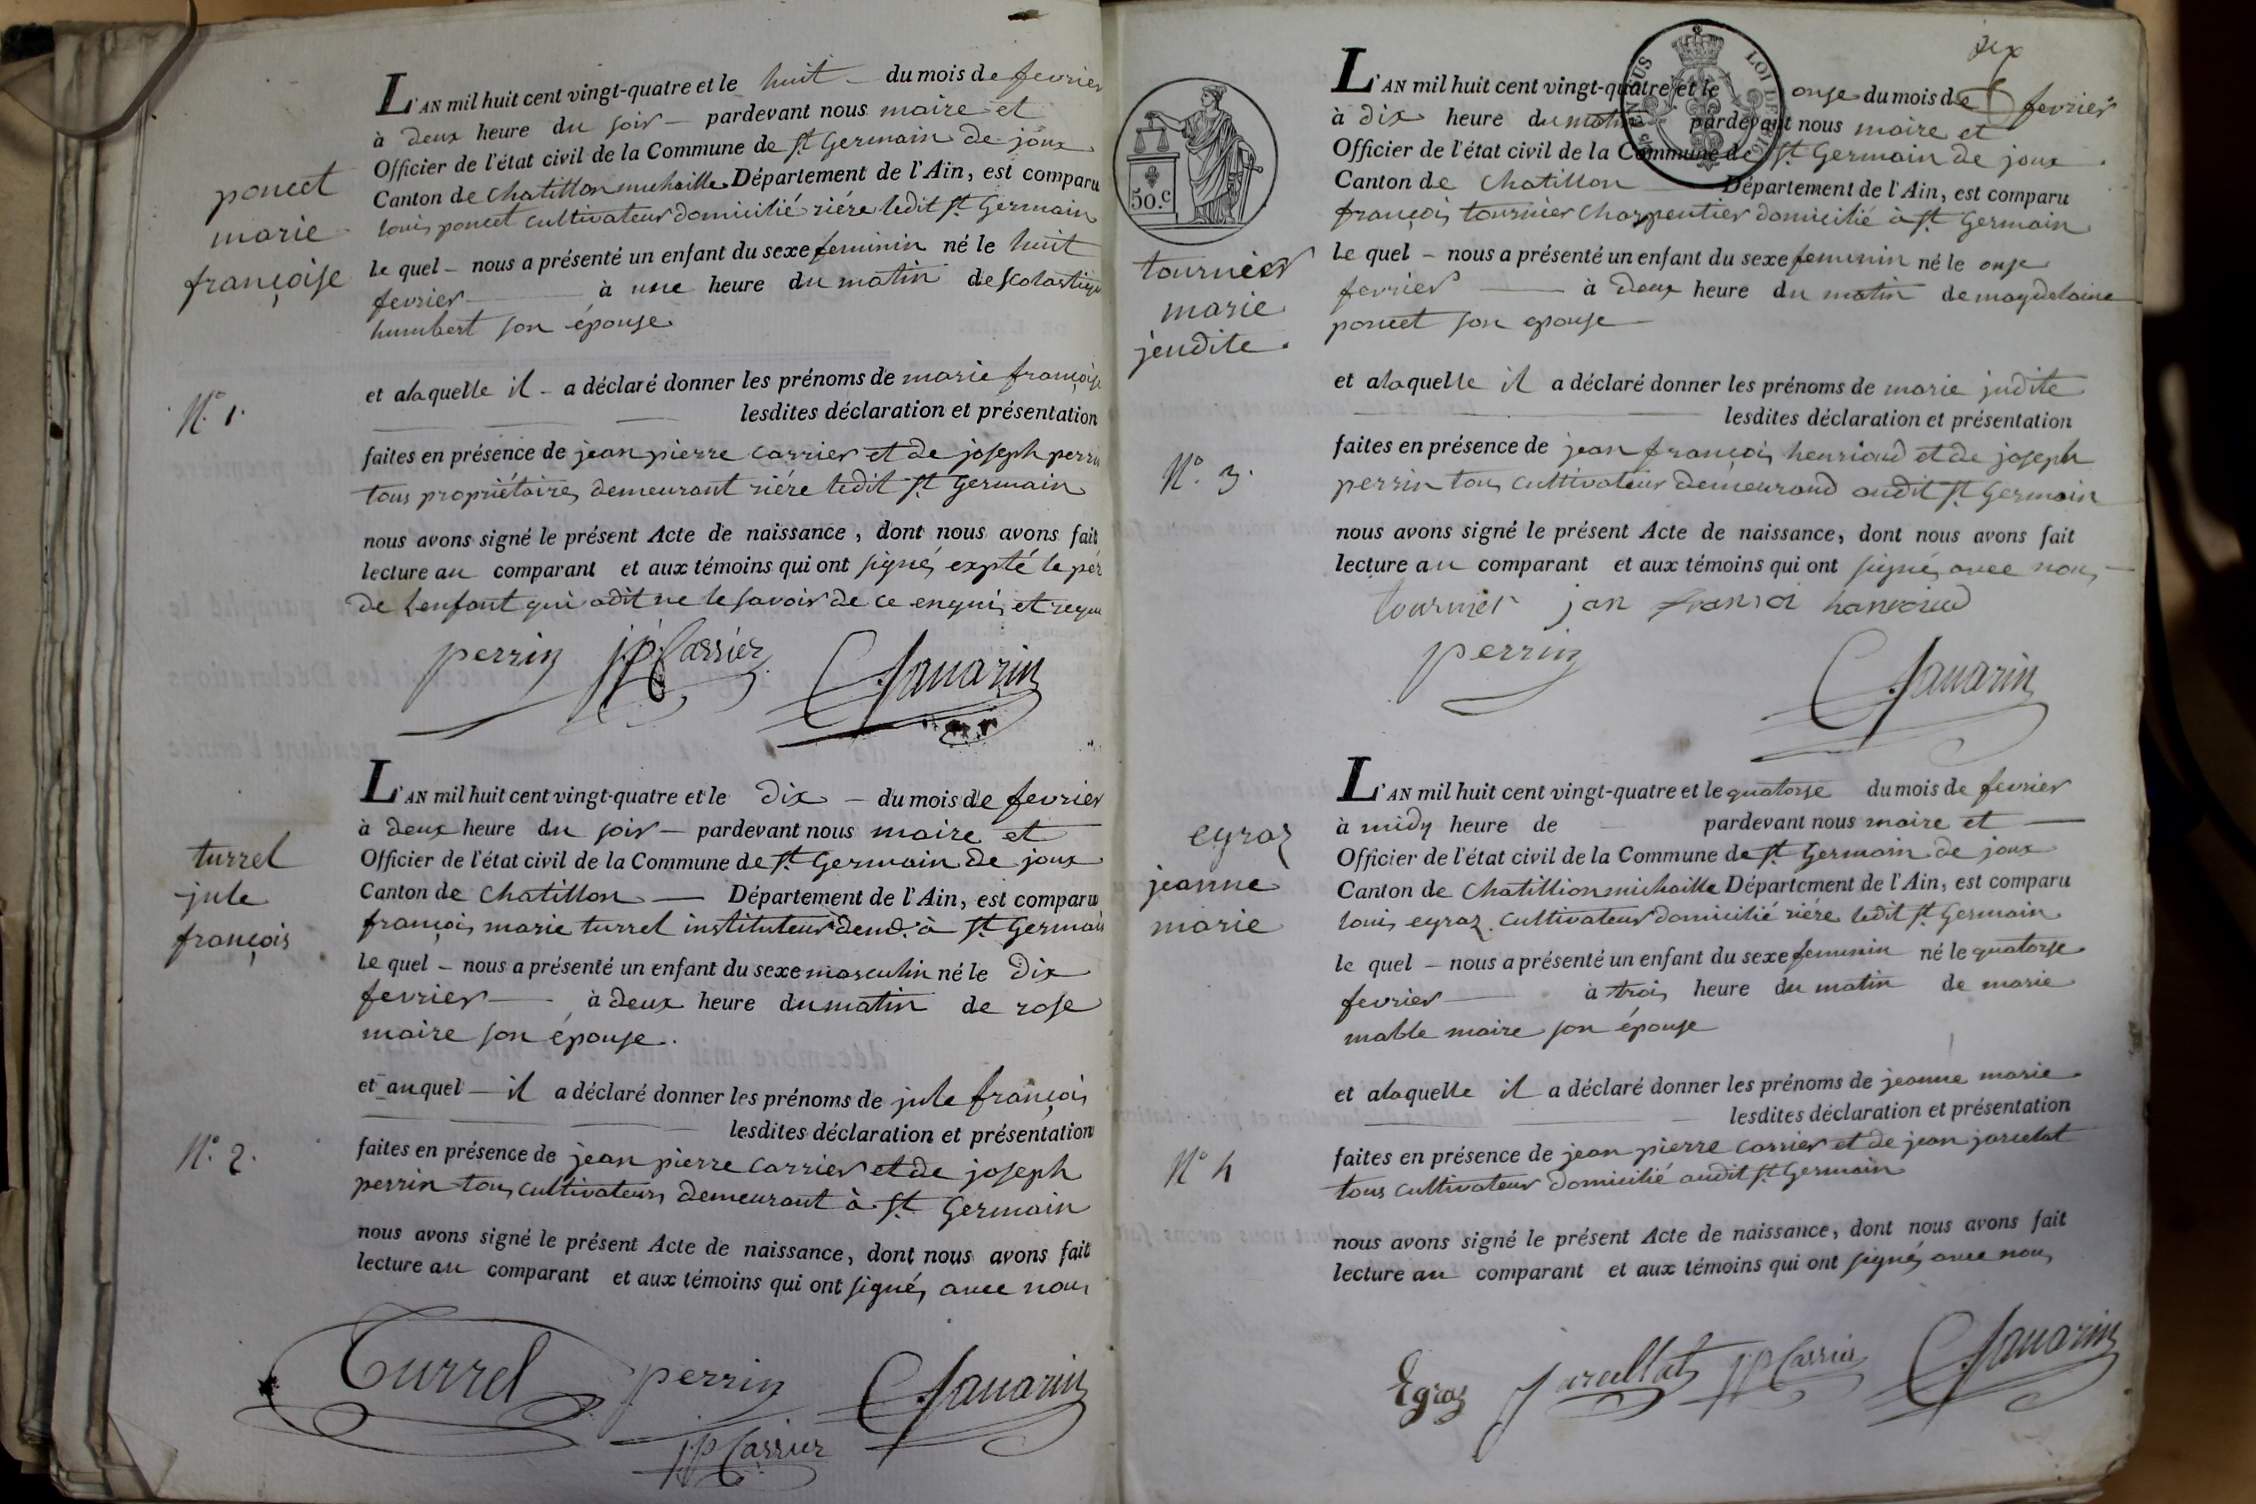 poncet
marie
françoise
N.° 1.
L'AN mil huit cent vingt-quatre et le huit – du mois de fevrier
à deux heure du soir — pardevant nous maire et
Officier de l'état civil de la Commune de St. Germain de joux
Canton de Chatillon michaille Département de l'Ain, est comparu
louis poncet cultivateur domicilié riére ledit St. Germain
le quel – nous a présenté un enfant du sexe feminin né le huit
fevrier — à une heure du matin de scolastique
humbert son épouse
et alaquelle il – a déclaré donner les prénoms de marie françoise
lesdites déclaration et présentation
faites en présence de jean pierre carrier et de joseph perrin
tous propriétaires demeurant riére ledit St. Germain
nous avons signé le présent Acte de naissance, dont nous avons fait
lecture au comparant et aux témoins qui ont signés expté le pér
de l'enfant qui adit ne le savoir de ce enquis et requis
perrin JP Carrier Savarin
turrel
jule
françois
N.° 2.
L'AN mil huit cent vingt-quatre et le dix — du mois de fevrier
à deux heure du soir — pardevant nous maire et
Officier de l'état civil de la Commune de St. Germain de joux
Canton de Chatillon — Département de l'Ain, est comparu
françois marie turrel instituteur demt. à St. Germain
le quel – nous a présenté un enfant du sexe masculin né le dix
fevrier — à deux heure du matin de rose
maire son épouse.
et auquel — il a déclaré donner les prénoms de jule françois
lesdites déclaration et présentation
faites en présence de jean pierre carrier et de joseph
perrin tous cultivateurs demeurant à St. Germain
nous avons signé le présent Acte de naissance, dont nous avons fait
lecture au comparant et aux témoins qui ont signés avec nous
Turrel perrin Savarin
JP Carrier
50.c
SUS
LOI DE 1816
tournier
marie
jeudite.
N.° 3.
L'AN mil huit cent vingt-quatre et le onze du mois de fevrier
à dix heure du matin pardevant nous maire et
Officier de l'état civil de la Commune de St. Germain de joux
Canton de Chatillon — Département de l'Ain, est comparu
françois tournier charpentier domicilié à St. Germain
le quel – nous a présenté un enfant du sexe feminin né le onze
fevrier — à deux heure du matin de magdelaine
poncet son epouse —
et alaquelle il a déclaré donner les prénoms de marie judite
lesdites déclaration et présentation
faites en présence de jean françois henrioud et de joseph
perrin tous cultivateur demeurand audit St. Germain
nous avons signé le présent Acte de naissance, dont nous avons fait
lecture au comparant et aux témoins qui ont signés avec nous —
tournier jan
perrin Savarin
egraz
jeanne
marie
N.° 4
L'AN mil huit cent vingt-quatre et le quatorze du mois de fevrier
à midy heure de — pardevant nous maire et —
Officier de l'état civil de la Commune de St. Germain de joux
Canton de Chatillion michaille Département de l'Ain, est comparu
louis egraz cultivateur domicilié riére ledit St. Germain
le quel – nous a présenté un enfant du sexe feminin né le quatorze
fevrier — à trois heure du matin de marie
mable maire son épouse
et alaquelle il a déclaré donner les prénoms de jeanne marie
lesdites déclaration et présentation
faites en présence de jean pierre carrier et de jean jarcelat
tous cultivateur domicilié audit St. Germain
nous avons signé le présent Acte de naissance, dont nous avons fait
lecture au comparant et aux témoins qui ont signés avec nous
Egraz Jarcellat JP Carrier Savarin